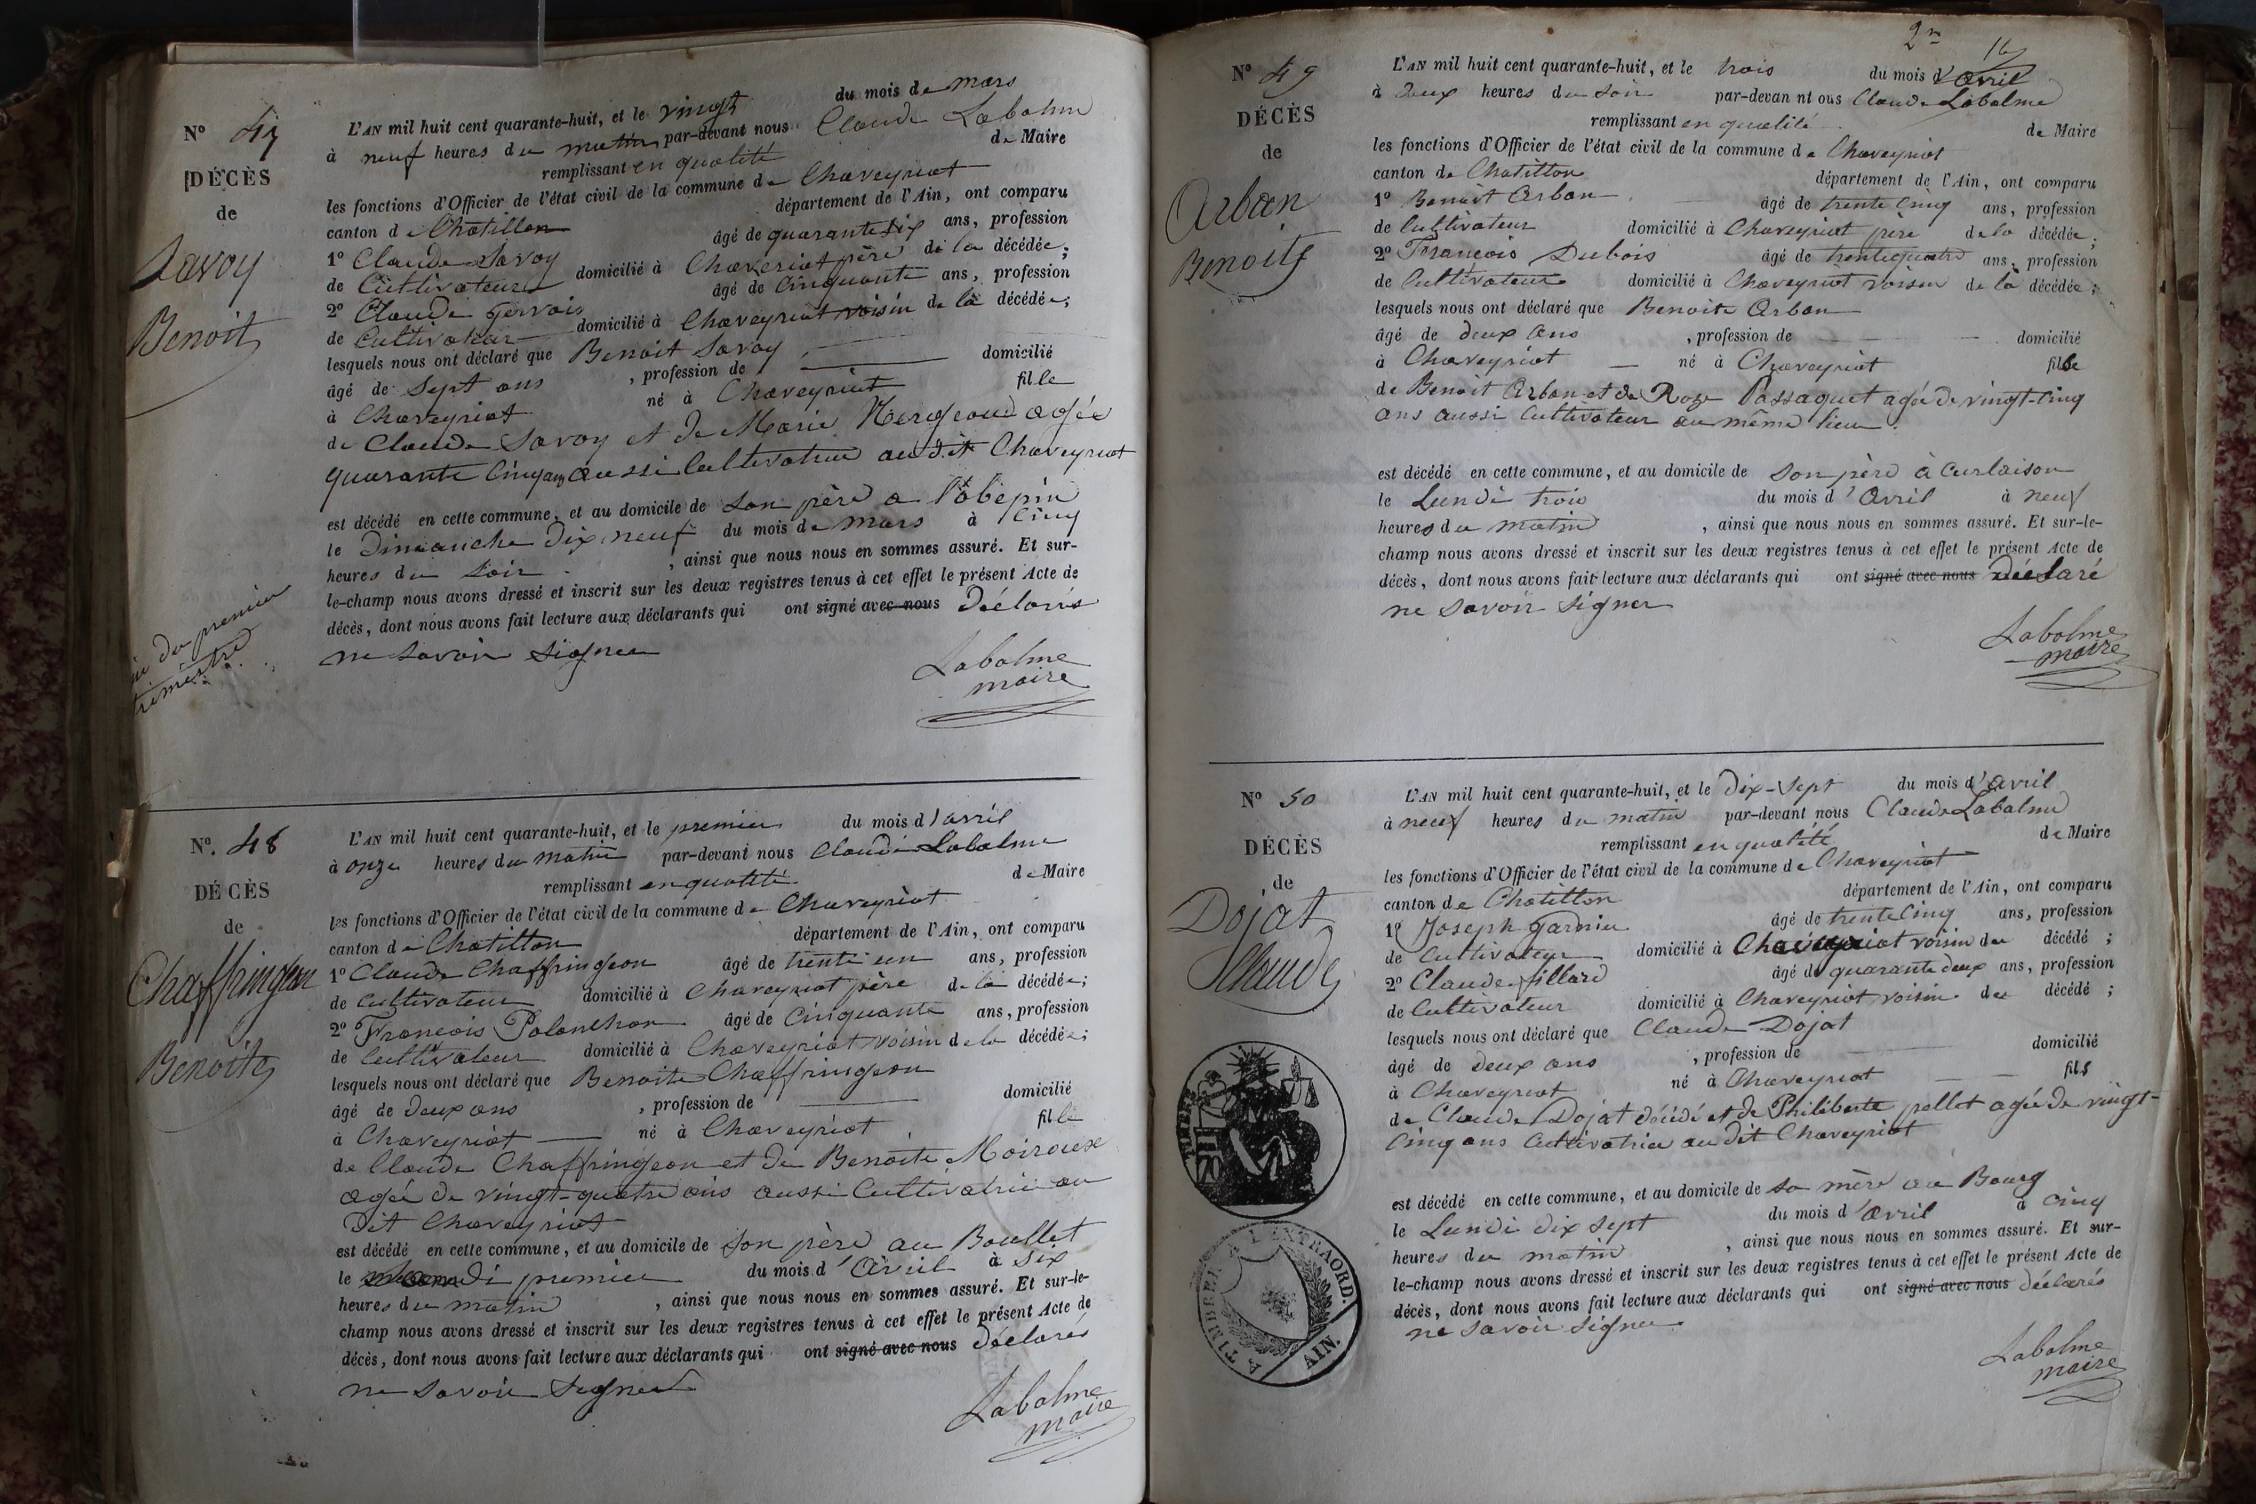 N° 47
DÉCÈS
de
Savoy
Benoit
L'AN mil huit cent quarante-huit, et le vingt du mois de mars
à neuf heures du matin par-devant nous Claude Labalme
remplissant en qualité de Maire
les fonctions d'Officier de l'état civil de la commune de Chaveyriat
canton de Chatillon département de l'Ain, ont comparu
1° Claude Savoy âgé de quarante six ans, profession
de Cultivateur domicilié à Chaveriat père de la décédée;
2° Claude Gervais âgé de Cinquante ans, profession
de Cultivateur domicilié à Chaveyriat voisin de la décédée;
lesquels nous ont déclaré que Benoit Savoy
âgé de Sept ans , profession de domicilié
à Chaveyriat né à Chaveyriat fille
de Claude Savoy et de Marie agée
quarante Cinq ans aussi Cultivatrice au dit Chaveyriat
est décédé en cette commune, et au domicile de son père a l'obepin
le Dimanche Dix neuf du mois de mars à Cinq
heures du soir , ainsi que nous nous en sommes assuré. Et sur-
le-champ nous avons dressé et inscrit sur les deux registres tenus à cet effet le présent Acte de
décès, dont nous avons fait lecture aux déclarants qui ont signé avec nous Déclarés
ne savoir signer
Labalme
maire
du premier
trimestre
N°. 48
DÉCÈS
de
Chaffringeon
Benoite
L'AN mil huit cent quarante-huit, et le premier du mois d'avril
à onze heures du matin par-devant nous Claude Labalme
remplissant en qualité de Maire
les fonctions d'Officier de l'état civil de la commune de Chaveyriat
canton de Chatillon département de l'Ain, ont comparu
1° Claude Chaffringeon âgé de trente un ans, profession
de Cultivateur domicilié à Chaveyriat père de la décédée;
2° Francois Polonchon âgé de Cinquante ans, profession
de Cultivateur domicilié à Chaveyriat voisin de la décédée;
lesquels nous ont déclaré que Benoite Chaffringeon
âgé de Deux ans , profession de domicilié
à Chaveyriat né à Chaveyriat fille
de Claude Chaffringeon et de Benoite Moiroux
agée de vingt-quatre ans aussi Cultivatrice au
Dit Chaveyriat
est décédé en cette commune, et au domicile de son père au Boullet
le premier du mois d'Avril à Six
heures du matin , ainsi que nous nous en sommes assuré. Et sur-le-
champ nous avons dressé et inscrit sur les deux registres tenus à cet effet le présent Acte de
décès, dont nous avons fait lecture aux déclarants qui ont signé avec nous Déclarés
ne savoir signer
Labalme
maire
2m
16
N° 49
DÉCÈS
de
Arban
Benoite
L'AN mil huit cent quarante-huit, et le trois du mois d'Avril
à deux heures du soir par-devan nt ous Claude Labalme
remplissant en qualité de Maire
les fonctions d'Officier de l'état civil de la commune de Chaveyriat
canton de Chatillon département de l'Ain, ont comparu
1° Benoit Arban âgé de trente Cinq ans, profession
de Cultivateur domicilié à Chaveyriat père de la décédée;
2° Francois Dubois âgé de trente quatre ans, profession
de Cultivateur domicilié à Chaveyriat voisin de la décédée;
lesquels nous ont déclaré que Benoite Arban
âgé de deux ans , profession de domicilié
à Chaveyriat né à Chaveyriat fille
de Benoit Arban et de Roze Passaquet agée de vingt-Cinq
ans aussi Cultivateur au même lieu
est décédé en cette commune, et au domicile de son père à Curlaison
le Lundi trois du mois d'Avril à neuf
heures du matin , ainsi que nous nous en sommes assuré. Et sur-le-
champ nous avons dressé et inscrit sur les deux registres tenus à cet effet le présent Acte de
décès, dont nous avons fait lecture aux déclarants qui ont signé avec nous Déclaré
ne savoir signer
Labalme
maire
N° 50
DÉCÈS
de
Dojat
Claude
L'AN mil huit cent quarante-huit, et le Dix-Sept du mois d'Avril
à neuf heures du matin par-devant nous Claude Labalme
remplissant en qualité de Maire
les fonctions d'Officier de l'état civil de la commune de Chaveyriat
canton de Chatillon département de l'Ain, ont comparu
1° Joseph Garnier âgé de trente Cinq ans, profession
de Cultivateur domicilié à Chaveyriat voisin du décédé ;
2° Claude fillard âgé de quarante deux ans, profession
de Cultivateur domicilié à Chaveyriat voisin du décédé ;
lesquels nous ont déclaré que Claude Dojat
âgé de deux ans , profession de domicilié
à Chaveyriat né à Chaveyriat fils
de Claude Dojat décédé et de Philiberte pellet agée de vingt-
Cinq ans Cultivatrice au dit Chaveyriat
est décédé en cette commune, et au domicile de sa mère au Bourg
le Lundi dix sept du mois d'avril à Cinq
heures du matin , ainsi que nous nous en sommes assuré. Et sur-
le-champ nous avons dressé et inscrit sur les deux registres tenus à cet effet le présent Acte de
décès, dont nous avons fait lecture aux déclarants qui ont signé avec nous déclarés
ne savoir signer
Labalme
maire
TIMBRE
70
TIMBRE A L'EXTRAORD.
AIN.